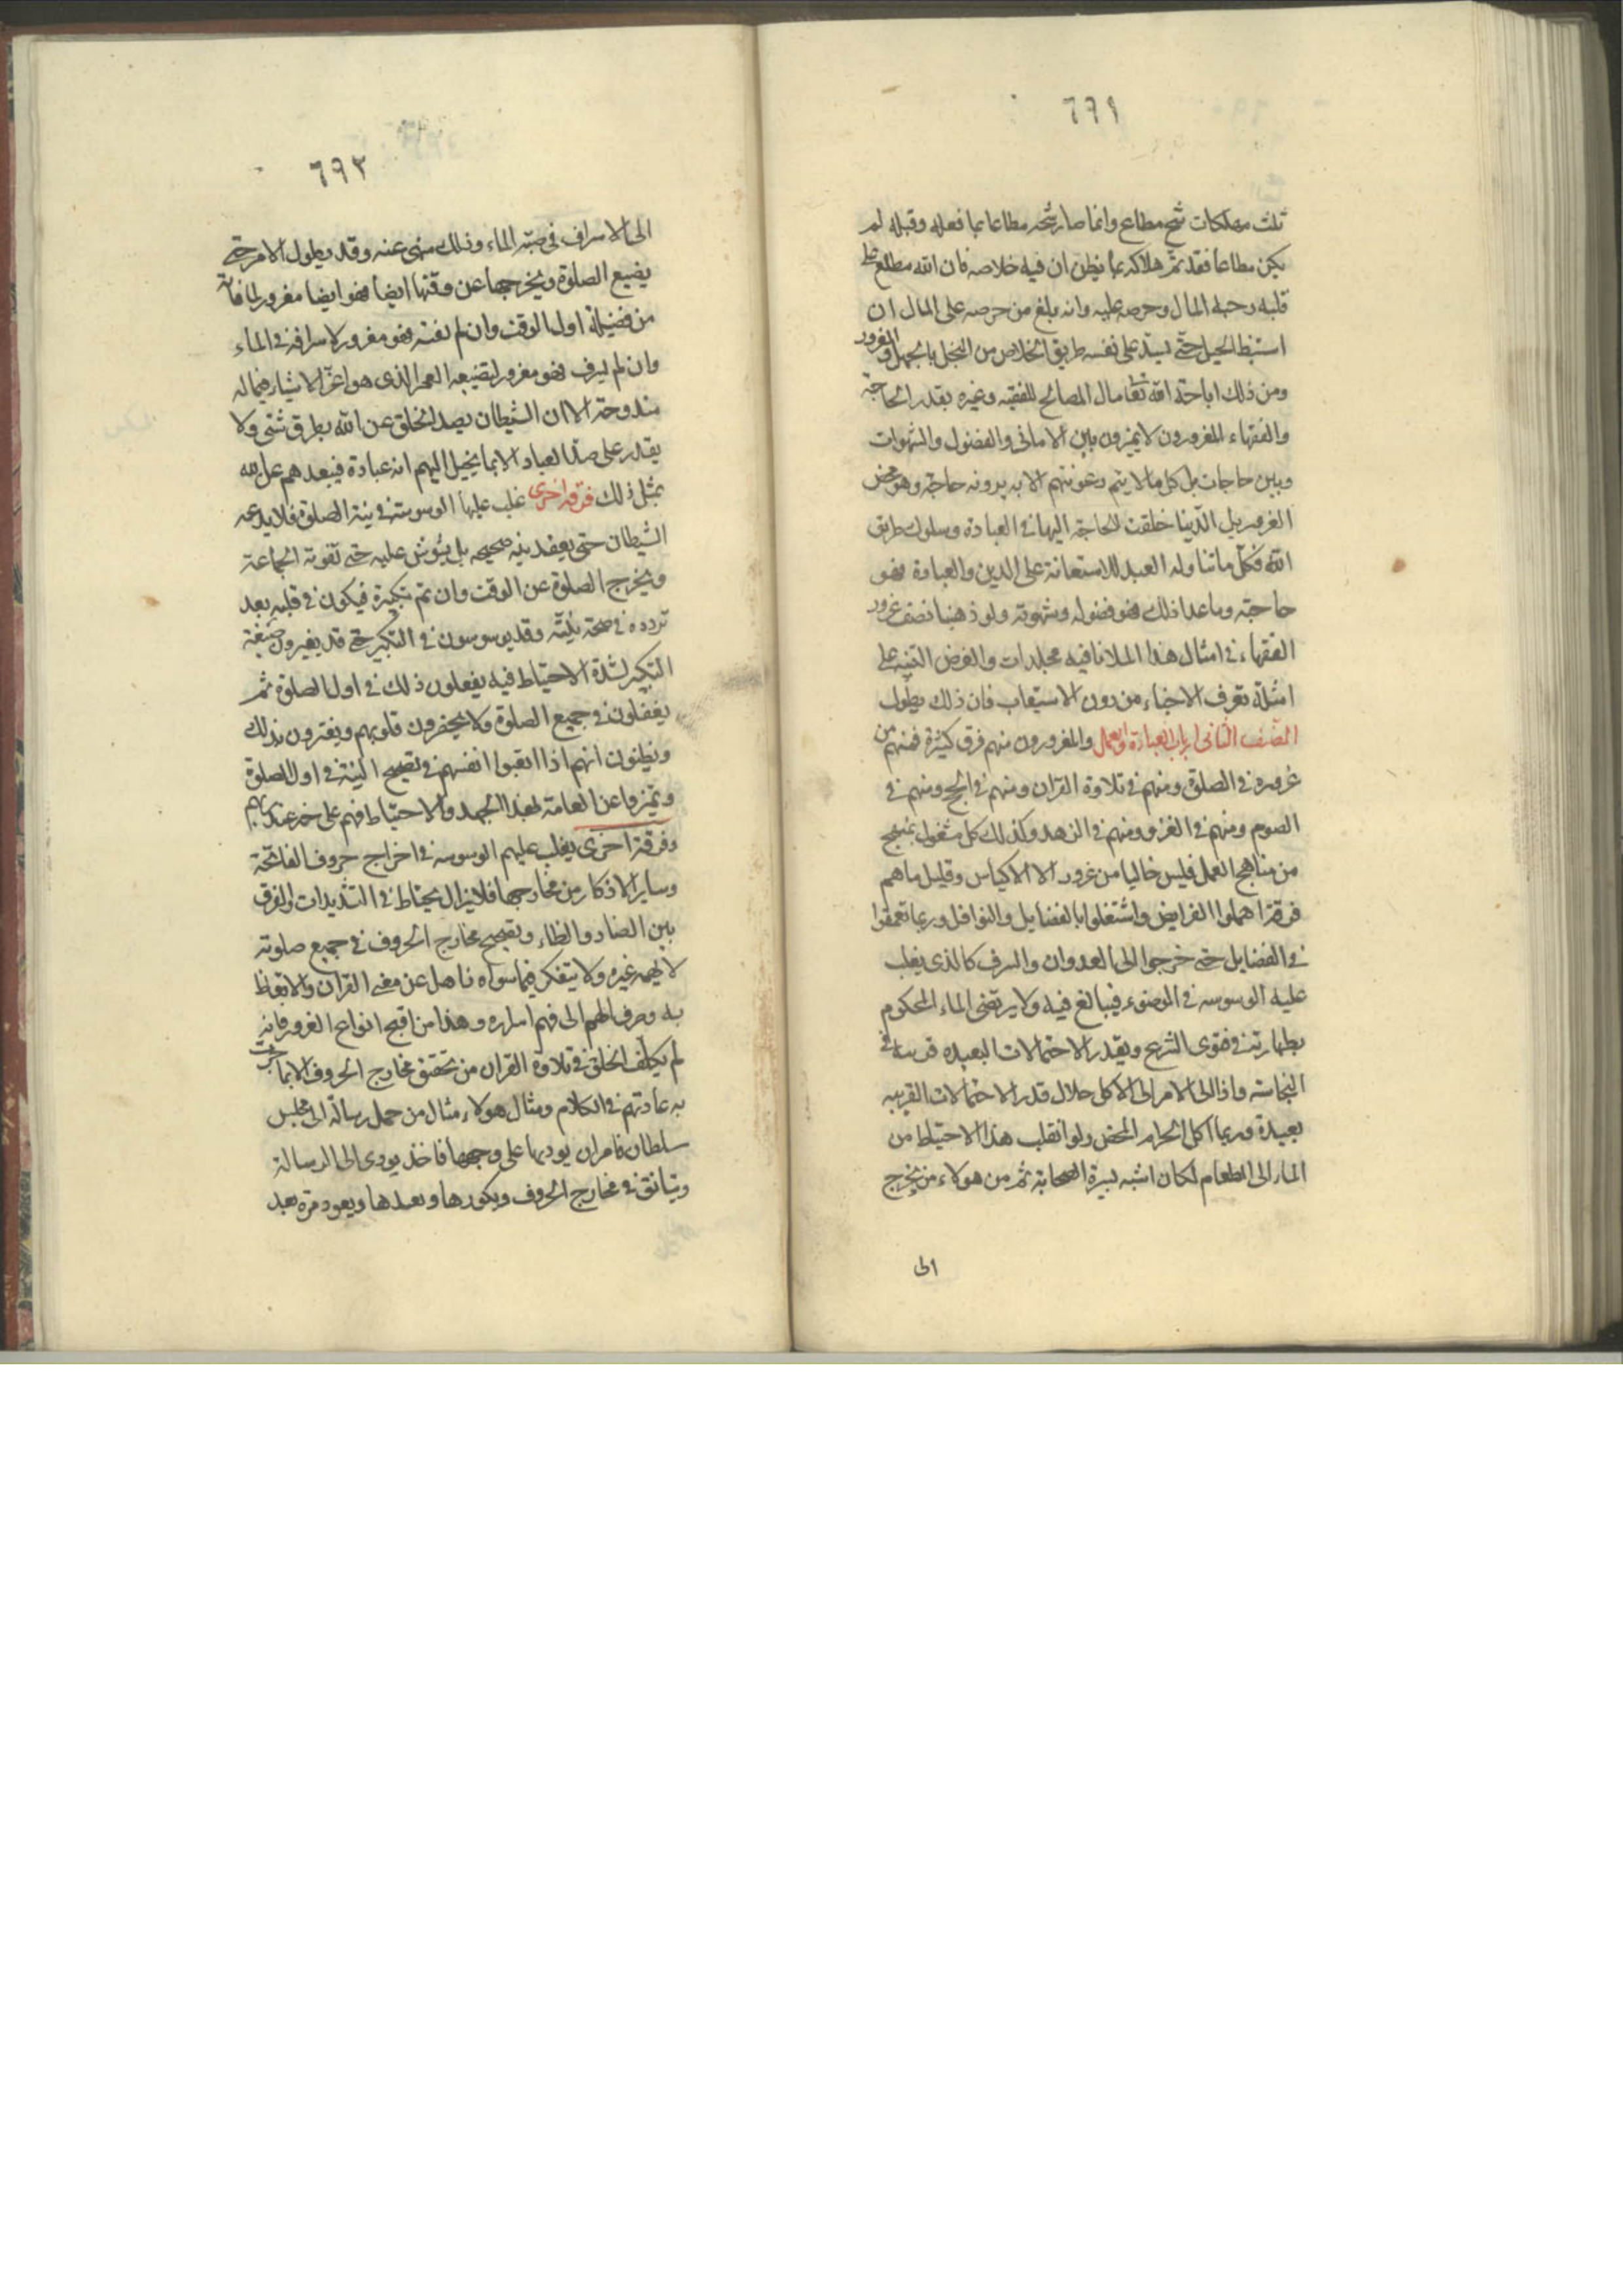 ٦٩١
ثلث مهلكات شح مطاع وانما صار شحه مطاعا بما فعله وقبله لم
يكن مطاعا فقد تم هلاكه بما يظن ان فيه خلاصه فان الله مطلع على
قلبه وحبه المال وحرصه عليه وانه بلغ من حرصه على المال ان
استنبط الحيل حتى يسد على نفسه طريق الخلاص من البخل بالجهل والغرور
ومن ذلك اباحة الله تعا مال المصالح للفقيه وغيره بقدر الحاجة
والفقهاء المغرورون لا يميزون بين الاماني والفضول والشهوات
وبين حاجات بل كل ما لا يتم رعونتهم الا به يرونه حاجة وهو محض
الغرور بل الدنيا خلقت لحاجة اليها في العبادة وسلوك طريق
الله فكل ما تناوله العبد للاستعانة على الدين والعبادة فهو
حاجته وما عدا ذلك فهو فضوله وشهوته ولو ذهبنا نصف غرور
الفقهاء في امثال هذا لملانا فيه مجلدات والغرض التنبيه على
امثلة تعرف الاجناس من دون الاستيعاب فان ذلك يطول
الصنف الثاني ارباب العبادة والعمل والمغرورون منهم فرق كثيرة فمنهم من
غروره في الصلوة ومنهم في تلاوة القرآن ومنهم في الحج ومنهم في
الصوم ومنهم في الغزو ومنهم في الزهد وكذلك كل مشغول بمنهج
من مناهج العمل فليس خاليا من غرور الا الاكياس وقليل ما هم
فرقة اهملوا الفرايض واشتغلوا بالفضايل والنوافل وربما تعمقوا
في الفضايل حتى خرجوا الى العدوان والسرف كالذي يغلب
عليه الوسوسه في الوضوء فيبالغ فيه ولا يرتضى الماء المحكوم
بطهارته في فتوى الشرع ويقدر الاحتمالات البعيده قريبة في
النجاسة واذا الى الامر الى الاكل حلال قدر الاحتمالات القريبه
بعيدة وربما اكل الحرام المحض ولو انقلب هذا الاحتياط من
الماء الى الطعام لكان اشبه بسيرة الصحابة ثم من هولاء من يخرج
الى
٦٩٢
الى الاسراف في صب الماء وذلك منهى عنه وقد يطول الامر حتى
يضيع الصلوة ويخرجها عن وقتها ايضا فهو ايضا مغرور لما فاته
من فضيلة اول الوقت وان لم تفته فهو مغرور لاسرافه في الماء
وان لم يسرف فهو مغرور لتضييعه العمر الذي هو اعز الاشياء فيما له
مندوحة الا ان الشيطان يصد الخلق عن الله بطرق شتى ولا
يقدر على صد العباد الا بما يخيل اليهم انه عبادة فيبعدهم عن الله
بمثل ذلك فرقه اخرى غلب عليها الوسوسة في نية الصلوة فلا يدعه
الشيطان حتى يعقد نيه صحيحه بل يشوش عليه حتى تفوته الجماعة
ويخرج الصلوة عن الوقت وان تم تكبيرة فيكون في قلبه بعد
تردده في صحة نيته وقد يوسوسون في التكبير حتى قد يغيرون صيغة
التكبير لشدة الاحتياط فيه يفعلون ذلك في اول الصلوة ثم
يغفلون في جميع الصلوة ولا يحضرون قلوبهم ويغترون بذلك
ويظنون انهم اذا اتعبوا انفسهم في تصحيح النية في اول الصلوة
وتميزوا عن العامة بهذا الجهد والاحتياط فهم على خير عند ربهم
وفرقة اخرى يغلب عليهم الوسوسه في اخراج حروف الفاتحة
وساير الاذكار من مخارجها فلا يزال يحتاط في التشديدات والفرق
بين الضاد والظاء وتصحيح مخارج الحروف في جميع صلوته
لا يهمه غيره ولا يتفكر فيما سواه ذاهل عن معنى القران والاتعاظ
به وصرف الهم الى فهم اسراره وهذا من اقبح انواع الغرور فانه
لم يكلف الخلق في تلاوة القران من تحقق مخارج الحروف الا بما جرت
به عادتهم في الكلام ومثال هولاء مثال من حمل رسالة الى مجلس
سلطان فامر ان يوديها على وجهها فاخذ يودى الى الرسالة
ويتانق في مخارج الحروف ويكررها ويعيدها ويعود مرة بعد